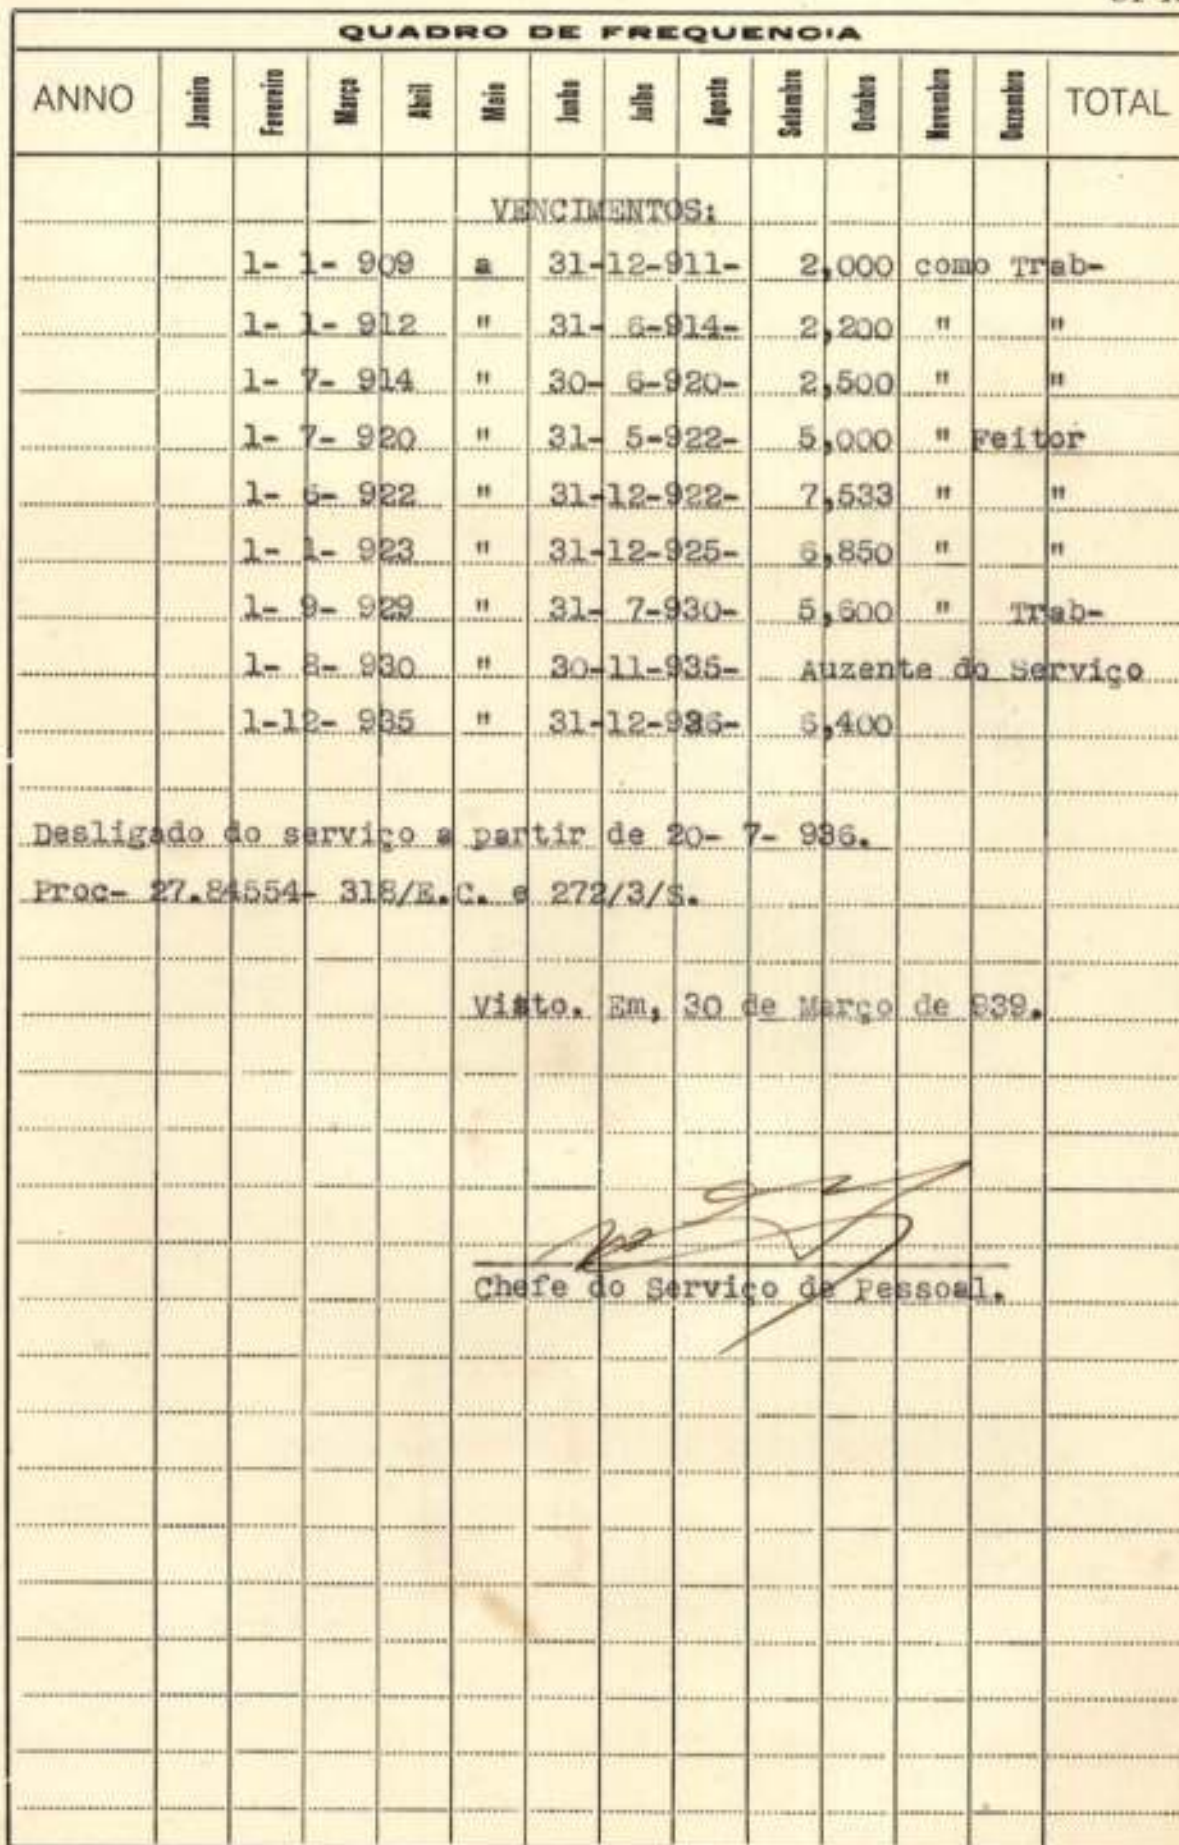 QUADRO DE FREQUENCIA
ANNO Janeiro Fevereiro Março Abril Maio Junho Julho Agosto Setembro Outubro Novembro Dezembro TOTAL
VENCIMENTOS:
1- 1- 909 a 31-12-911- 2,000 como Trab-
1- 1- 912 " 31- 6-914- 2,200 " "
1- 7- 914 " 30- 6-920- 2,500 " "
1- 7- 920 " 31- 5-922- 5,000 " Feitor
1- 6- 922 " 31-12-922- 7,533 " "
1- 1- 923 " 31-12-925- 6,850 " "
1- 9- 929 " 31- 7-930- 5,600 " Trab-
1- 8- 930 " 30-11-935- Auzente do Serviço
1-12- 935 " 31-12-936- 6,400
Desligado do serviço a partir de 20- 7- 936.
Proc- 27.84554- 318/E.C. e 272/3/S.
Visto. Em, 30 de Março de 939.
Chefe do Serviço de Pessoal.